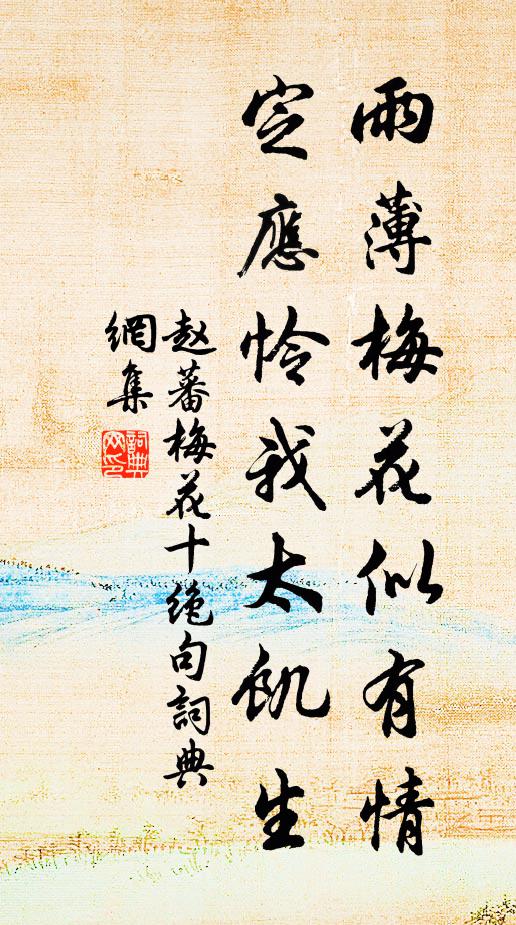 雨薄梅花似有情
定應怜我太飢生
赵蕃梅花十绝句詞典
網集
詞典
网印